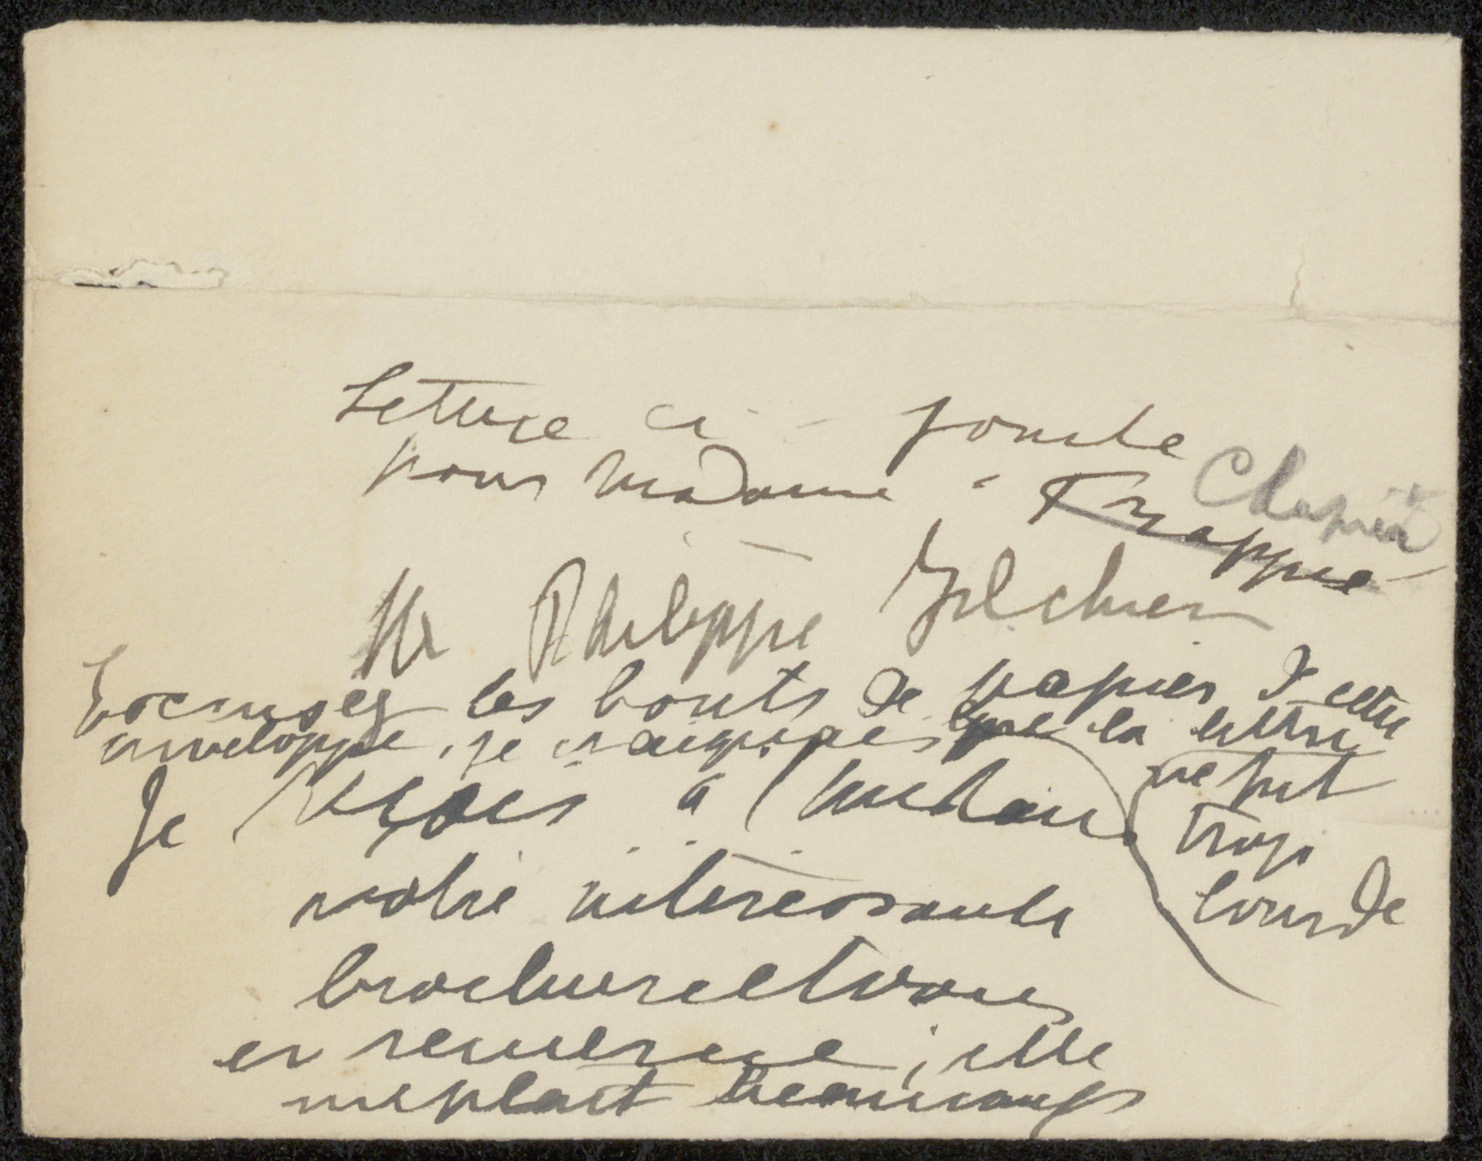 Lettre ci-jointe
pour Madame Frappié
Chapier
Mr Philippe Zilcken
Excusez les bouts de papier & cette
enveloppe, je craignais que la lettre
ne fut
trop
lourde
Je reçois à l'instant
votre intéressante
brochure et vous
en remercie, elle
me plait beaucoup